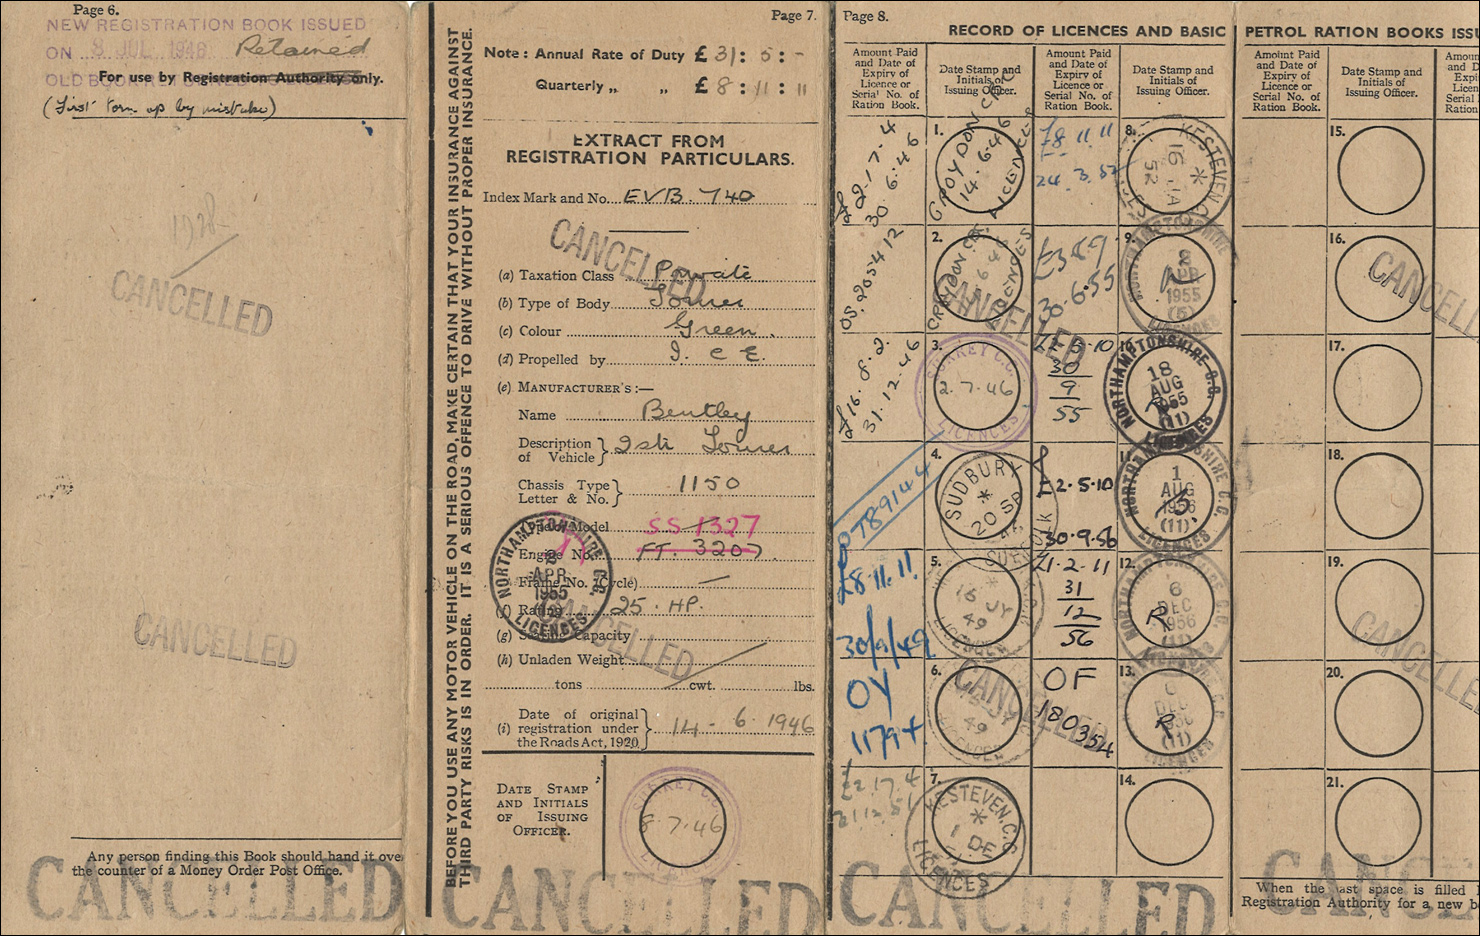 Page 6.
NEW REGISTRATION BOOK ISSUED
ON 8 JUL 1946 Retained
OLD BOOK
For use by Registration Authority only.
(First torn up by mistake)
1928
CANCELLED
CANCELLED
Any person finding this Book should hand it ove
the counter of a Money Order Post Office.
CANCELLED
BEFORE YOU USE ANY MOTOR VEHICLE ON THE ROAD, MAKE CERTAIN THAT YOUR INSURANCE AGAINST
THIRD PARTY RISKS IS IN ORDER. IT IS A SERIOUS OFFENCE TO DRIVE WITHOUT PROPER INSURANCE.
Page 7.
Note: Annual Rate of Duty £ 31: 5: -
Quarterly „ „ £ 8: 11: 11
EXTRACT FROM
REGISTRATION PARTICULARS.
Index Mark and No. EVB. 740
CANCELLED
(a) Taxation Class Private
(b) Type of Body Tourer
(c) Colour Green.
(d) Propelled by I. C E.
(e) MANUFACTURER'S:—
Name Bentley
Description of Vehicle
Tourer
Chassis Type
Letter & No. 1150
Type or Model SS 1327
Engine No. FT. 3207
Frame No. (Cycle) —
(f) Rating 25 . HP.
(g) Seating Capacity
(h) Unladen Weight
tons cwt. lbs.
CANCELLED
NORTHAMPTONSHIRE C.C.
APR
1955
LICENCES
(i) Date of original
registration under
the Roads Act, 1920
14 - 6. 1946
DATE STAMP
AND INITIALS
OF ISSUING
OFFICER.
SURREY C.C.
8.7.46
CANCELLED
Page 8.
RECORD OF LICENCES AND BASIC
PETROL RATION BOOKS ISSU
Amount Paid
and Date of
Expiry of
Licence or
Serial No. of
Ration Book.
Date Stamp and
Initials of
Issuing Officer.
Amount Paid
and Date of
Expiry of
Licence or
Serial No. of
Ration Book.
Date Stamp and
Initials of
Issuing Officer.
Amount Paid
and Date of
Expiry of
Licence or
Serial No. of
Ration Book.
Date Stamp and
Initials of
Issuing Officer.
Amount
and D
Expi
Licen
Serial
Ration
£2-17-4
30 6.46
1.
CROYDON
14.6.46
LICENCES
£8 11.11
24.3.52
8.
KESTEVEN C.C.
16 JA
52
LICENCES
15.
2.
CROYDON
LICENCES
CANCELLED
30.6.55
9.
NORTHAMPTONSHIRE
8
APR
1955
(5)
LICENCES
16.
CANCELL
£16.8.2.
31.12.46
3.
SURREY C.C.
2.7.46
LICENCES
£2-5-10
30
9
55
10.
NORTHAMPTONSHIRE C.C.
18
AUG
1955
(11)
LICENCES
17.
OT89144
4.
SUDBURY
20 SP
SUFFOLK
£2.5.10
30.9.56
11.
NORTHAMPTONSHIRE C.C.
1
AUG
1956
(11)
LICENCES
18.
£8.11.11.
30/9/49
5.
16 JY
49
LICENCES
£1.2.11
31
12
56
12.
NORTHAMPTONSHIRE C.C.
6
DEC
1956
(11)
R
19.
CANCELLED
OY
6.
JY
49
LICENCES
CANCELLED
OF
180354
13.
DEC
(11)
R
20.
£2.17.4
7.
KESTEVEN C.C.
1 DE
LICENCES
14.
21.
CANCELLED
When the last space is filled
Registration Authority for a new b
CANCELLED